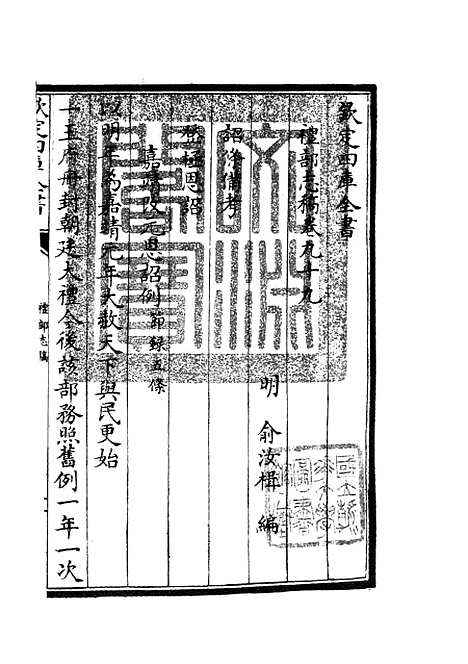 欽定四庫全書
禮部志稿卷九十九
明 俞汝楫 編
詔條備考
登極恩詔
嘉靖改元恩詔例節録五條
以明年為嘉靖元年大赦天下與民更始
一王府冊封朝廷大禮今後該部務照舊例一年一次
欽定四庫全書
禮部志稿